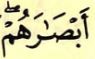 أَبْصَـٰرَهُمْ ۖ